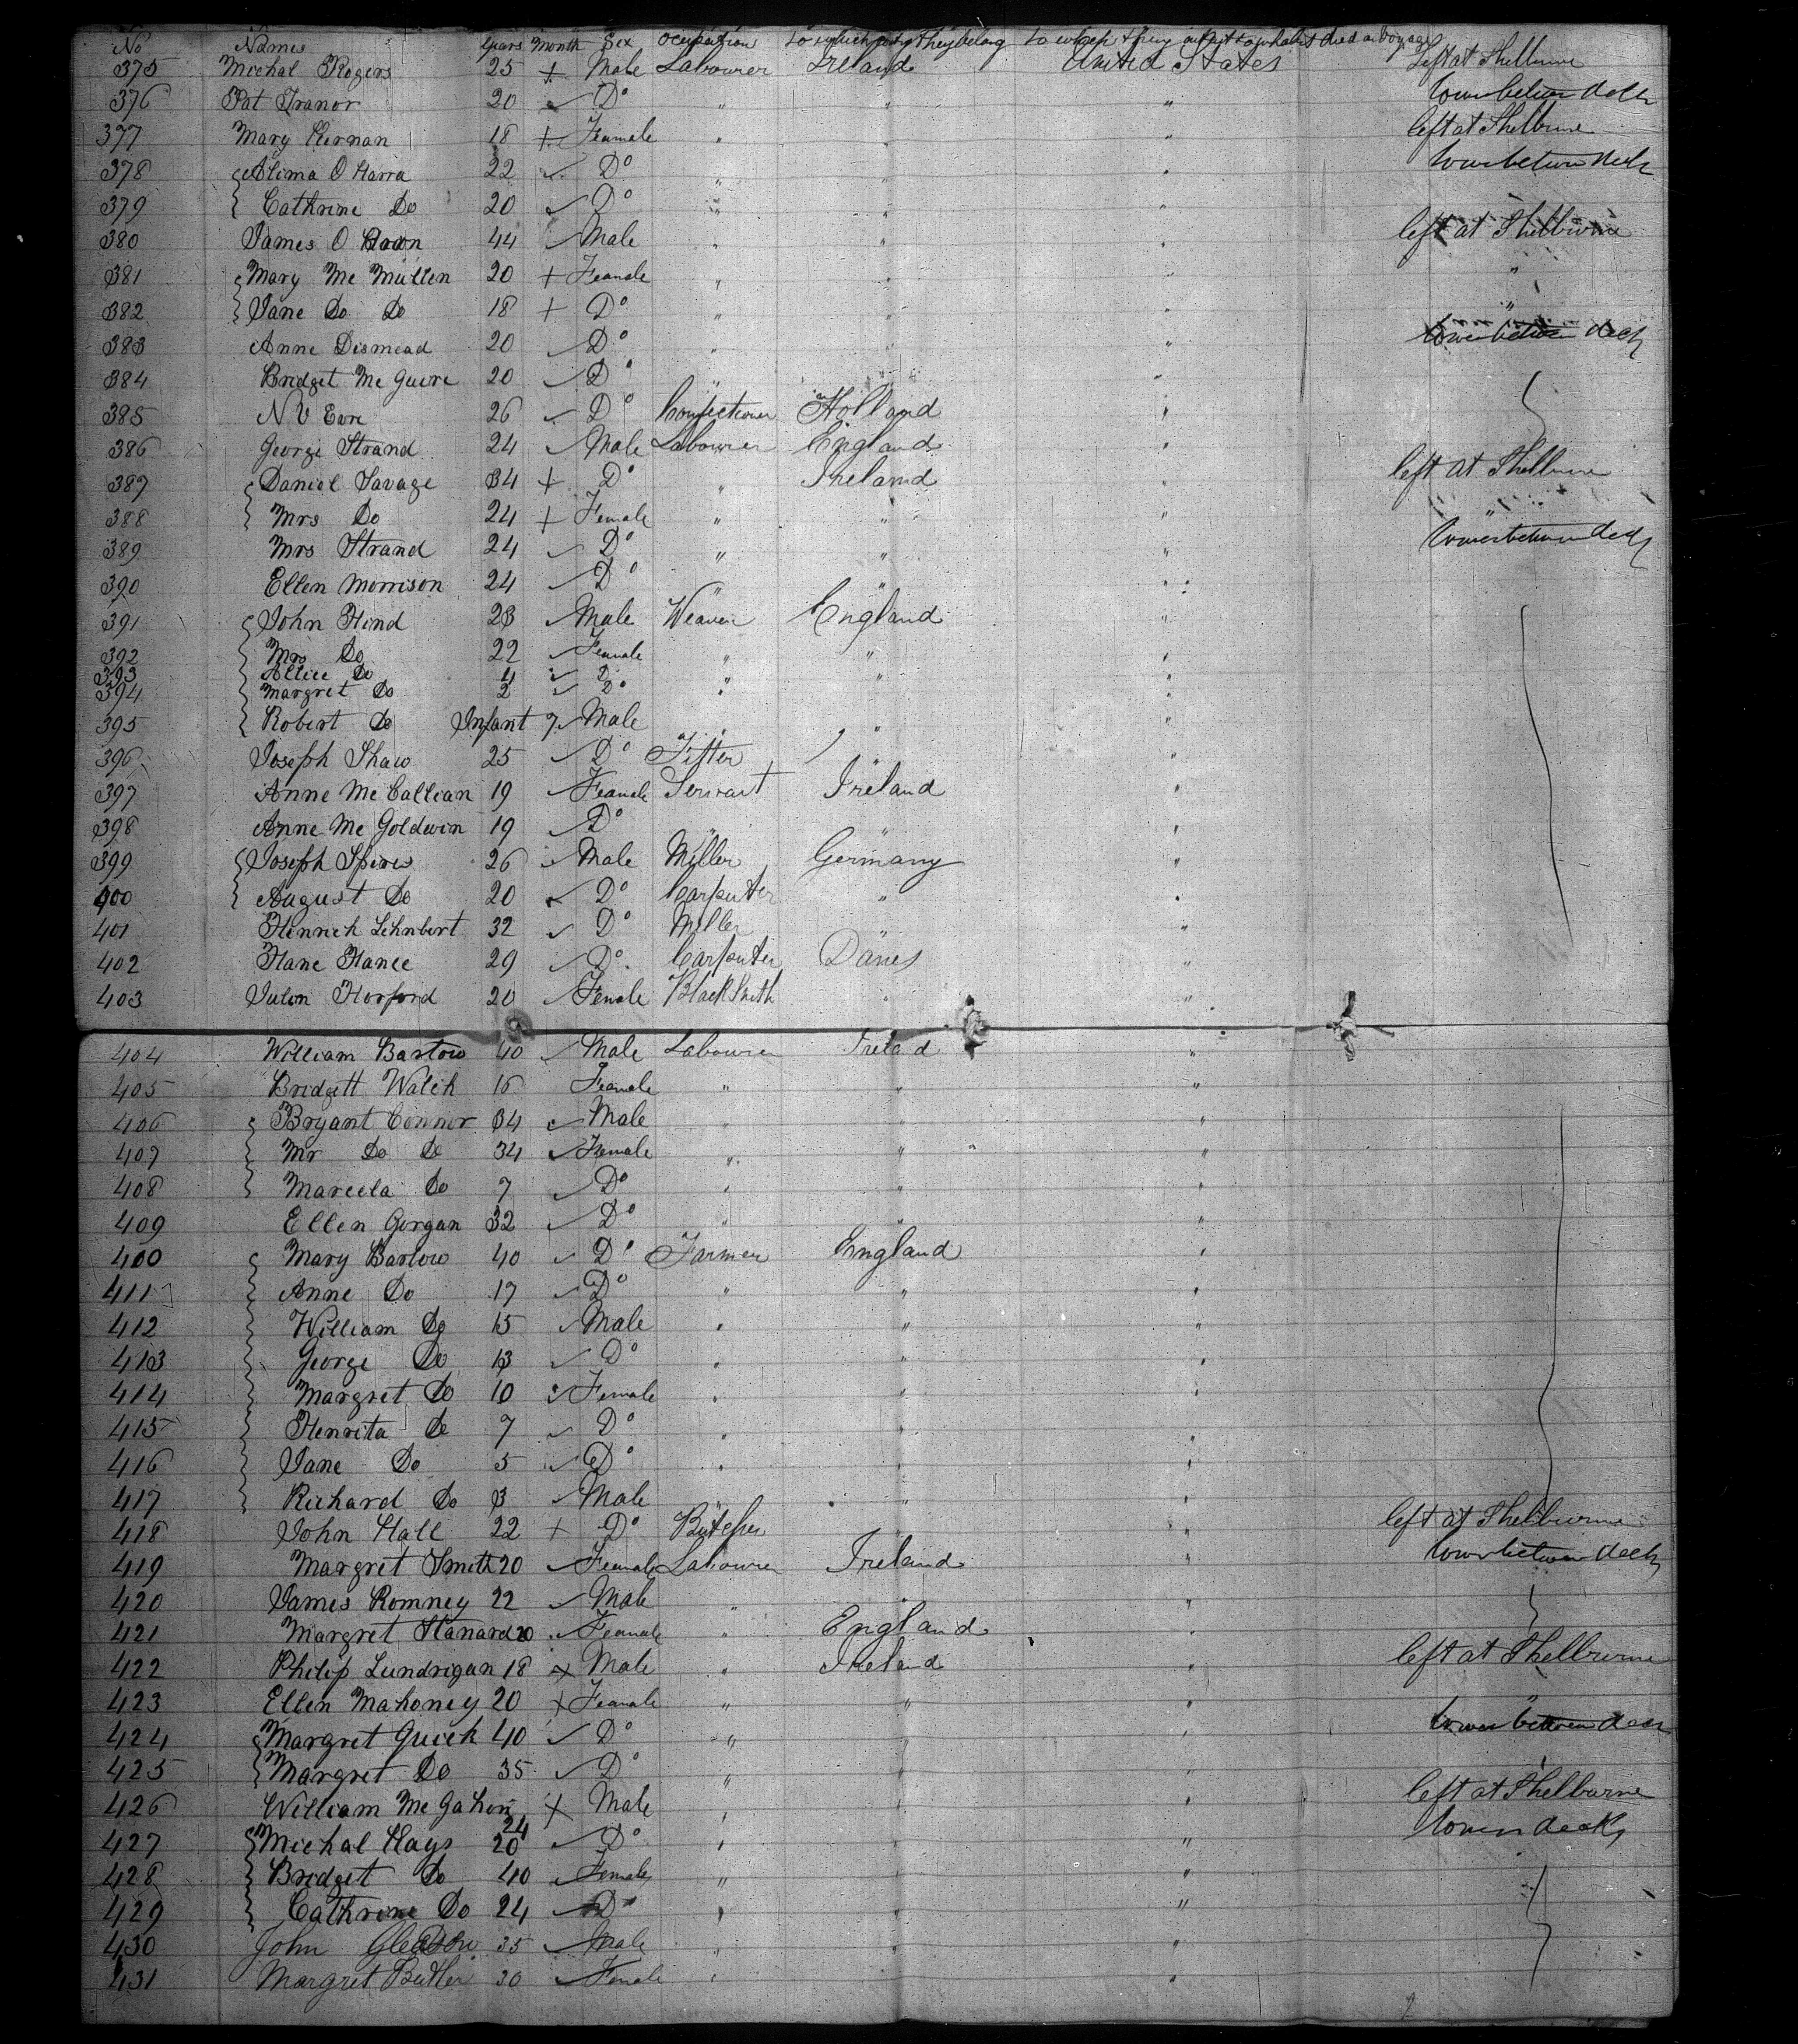 No Names Years Month Sex Ocupation to which cuty they belong to which they intent to inhabit died on Voyage
375 Michal Rogers 25 + Male Labourer Ireland United States Left at Shelburne
376 Pat Tranor 20 ✓ Do " " " lower between deck
377 Mary Kernan 18 + Female " " " left at Shelburne
378 Alima O Harra 22 ✓ Do " " " lower between deck
379 Cathrine Do 20 ✓ Do " " "
380 James O 44 ✓ Male " " " left at Shelburne
381 Mary Mc Mullen 20 + Female " " " "
382 Jane Do Do 18 + Do " " " "
383 Anne Dismead 20 ✓ Do " " " lower between deck
384 Bridget Mc Guire 20 ✓ Do " " "
385 N V Eare 26 ✓ Do Confectioner Holland "
386 George Strand 24 ✓ Male Labourer England "
387 Daniel Savage 34 + Do " Ireland " left at Shelburne
388 Mrs Do 24 + Female " " " "
389 Mrs Strand 24 ✓ Do " " " lower between deck
390 Ellen Morrison 24 ✓ Do " "
391 John Hind 23 ✓ Male Weaver England "
392 Mrs Do 22 ✓ Female " " "
393 Allice Do 4 ✓ Do " " "
394 Margret Do 2 ✓ Do " "
395 Robert Do Infant 7 ✓ Male " " "
396 Joseph Shaw 25 ✓ Do Fitter "
397 Anne Mc Callian 19 ✓ Female Servant Ireland "
398 Anne Mc Goldwin 19 ✓ Do "
399 Joseph Spires 26 ✓ Male Miller Germany "
400 August Do 20 ✓ Do Carpenter " "
401 Hinrich Lehnbert 32 ✓ Do Miller "
402 Hane Hance 29 ✓ Do Carpenter Danes "
403 Julon Horford 20 ✓ Female BlackSmith " "
404 William Bartow 40 ✓ Male Labourer Ireland "
405 Bridgett Walch 16 Female " " "
406 Bryant Connor 34 ✓ Male " " "
407 Mr Do Do 34 ✓ Female " " "
408 Marcela Do 7 ✓ Do " " "
409 Ellen Gorgan 32 ✓ Do " " "
400 Mary Bartow 40 ✓ Do Farmer England "
411 Anne Do 17 ✓ Do " " "
412 William Do 15 ✓ Male " " "
413 George Do 13 ✓ Do " " "
414 Margret Do 10 ✓ Female " " "
415 Henrita Do 7 ✓ Do " " "
416 Jane Do 5 ✓ Do " " "
417 Richard Do 3 ✓ Male " " "
418 John Hall 22 + Do Butcher " " left at Shelburne
419 Margret Smith 20 ✓ Female Labourer Ireland " lower between deck
420 James Romney 22 ✓ Male " " "
421 Margret Stanard 20 ✓ Female " England "
422 Philip Lundrigan 18 + Male " Ireland " left at Shelburne
423 Ellen Mahoney 20 + Female " " " "
424 Margret Quick 40 ✓ Do " " " lower between deck
425 Margret Do 35 ✓ Do " " "
426 William Mc Gahon 24 + Male " " " left at Shelburne
427 Michal Hays 20 ✓ Do " " " lower deck
428 Bridget Do 40 ✓ Female " " "
429 Cathrine Do 24 ✓ Do " " "
430 John Gleason 35 ✓ Male " " "
431 Margret Butler 30 ✓ Female " "